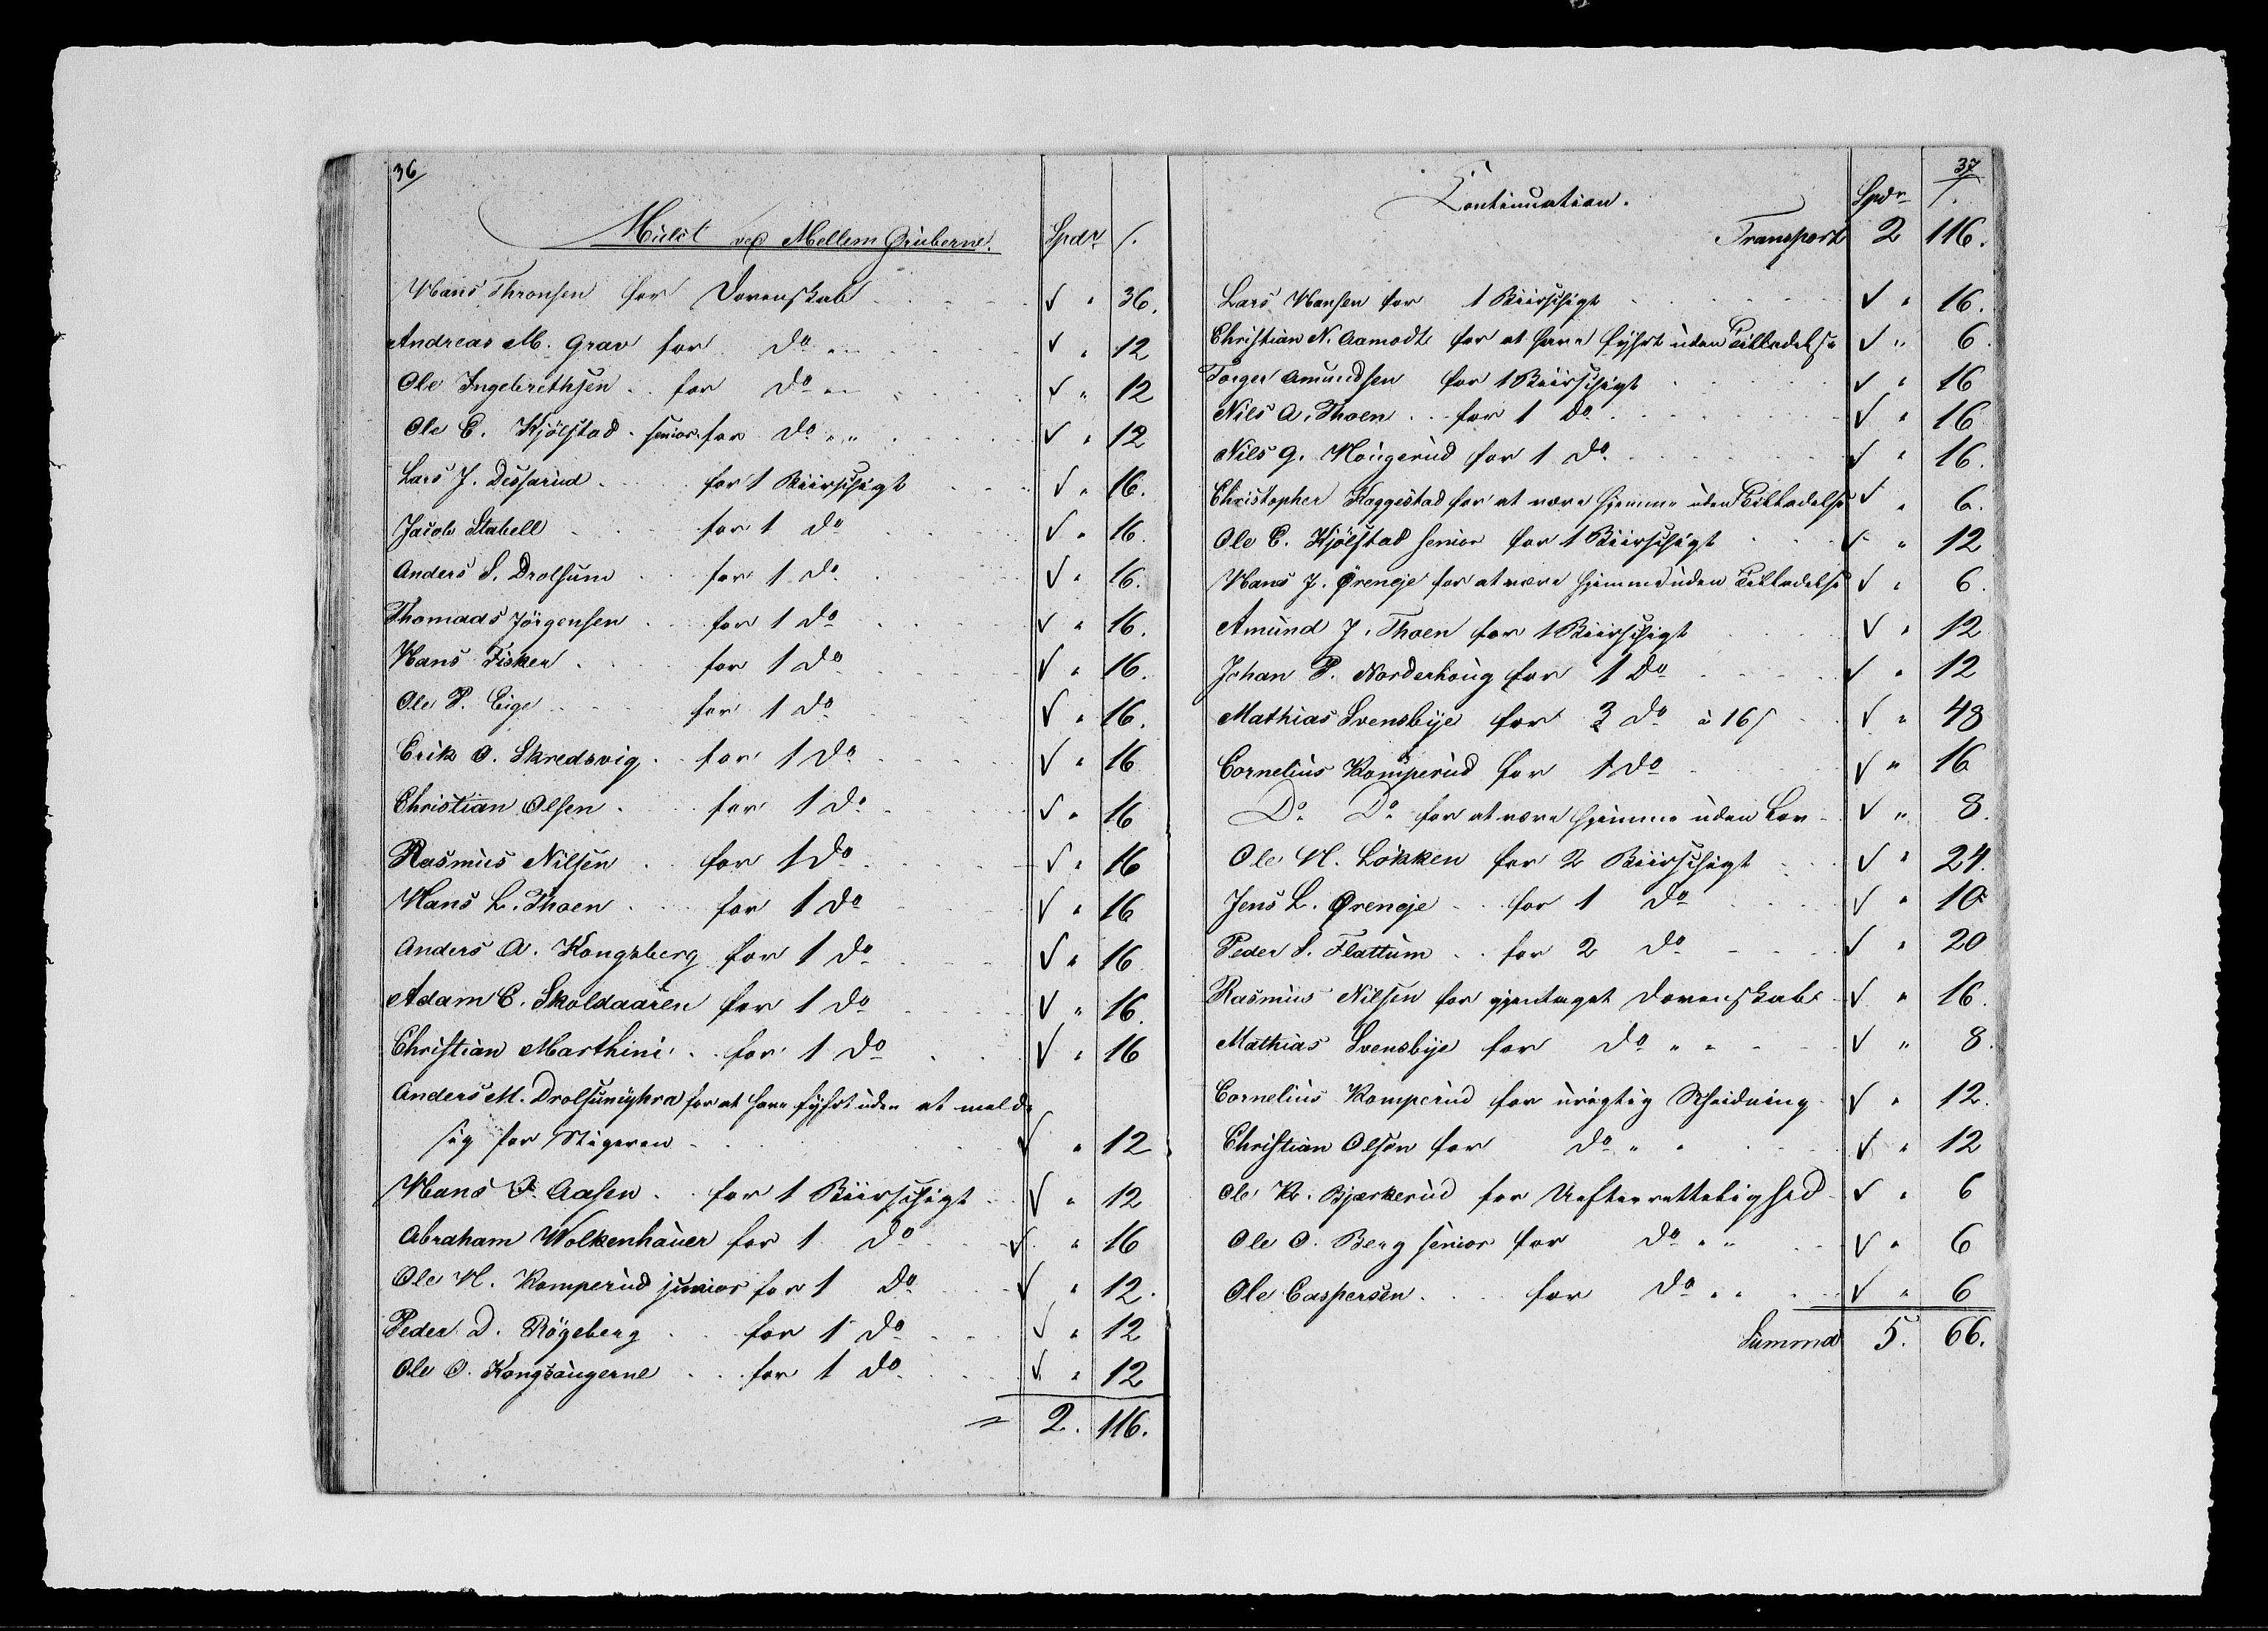 36/
Mulct ved Mellem Gruberne. Spdr ſ.
Hans Thronsen for Dovenskab " 36.
Andreas M. Grav for do " 12
Ole Ingebrethsen for do " 12
Ole C. Kjölstad senior for do " 12
Lars J. Dessarud for 1 Büirschigt " 16.
Jacob Stabell for 1 do " 16.
Anders S. Drolsum for 1 do " 16.
Thomads Jörgensen for 1 do " 16.
Hans Fisker for 1 do " 16.
Ole P. Eige for 1 do " 16.
Erik O. Skredsvig for 1 do " 16
Christian Olsen for 1 do " 16
Rasmus Nilsen for 1 do " 16
Hans L. Thoen for 1 do " 16
Anders A. Kongsberg for 1 do " 16
Adam C. Skoldaaren for 1 do " 16.
Christian Marthini for 1 do " 16
Anders M. Drolsum for at have uden at melde
sig for Stigeren " 12
Hans O. Aasen for 1 Büirschigt " 12
Abraham Wolkenhauer for 1 do " 16
Ole H. Komperud junior for 1 do " 12.
Peder D. Rögeberg for 1 do " 12
Ole O. Kongsaugerne for 1 do " 12
= 2. 116.
37
Continuation. Spdr ſ.
Transport 2 116.
Lars Hansen for 1 Büirschigt " 16.
Christian N. Aamodt for at have uden Tilladelse " 6.
Torger Amundsen for 1 Büirschigt " 16
Nils A. Thoen for 1 do " 16
Nils G. Hougerud for 1 do " 16.
Christopher Kaggestad for at være hjemme uden Tilladelse " 6.
Ole C. Kjölstad senior for 1 Büirschigt " 12
Hans J. Øreneje for at være hjemme uden Tilladelse " 6.
Amund J. Thoen for 1 Büirschigt " 12
Johan P. Norderhoug for 1 do " 12
Mathias Svensbye for 3 do à 16 ſ " 48
Cornelius Komperud for 1 do " 16
Do Do for at være hjemme uden Lov " 8.
Ole H. Lökken for 2 Büirschigt " 24.
Jens L. Øreneje for 1 do " 10
Peder S. Flattum for 2 do " 20
Rasmus Nilsen for gjentaget Dovenskab " 16.
Mathias Svensbye for do " " 8.
Cornelius Komperud for urigtig Skeidning " 12.
Christian Olsen for do " " 12
Ole Kr. Bjerkerud for Uefterrettelighed " 6
Ole O. Berg senior for do " " 6
Ole Caspersen for do " " 6
Summa 5. 66.